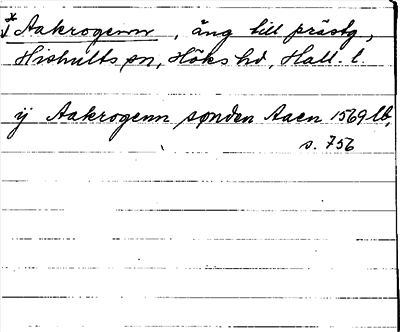 * Aakrogenn, äng till prästg,
Hishults sn, Höks hd, Hall. l.
ij Aakrogenn sønden Aaen 1569 lb,
s. 756